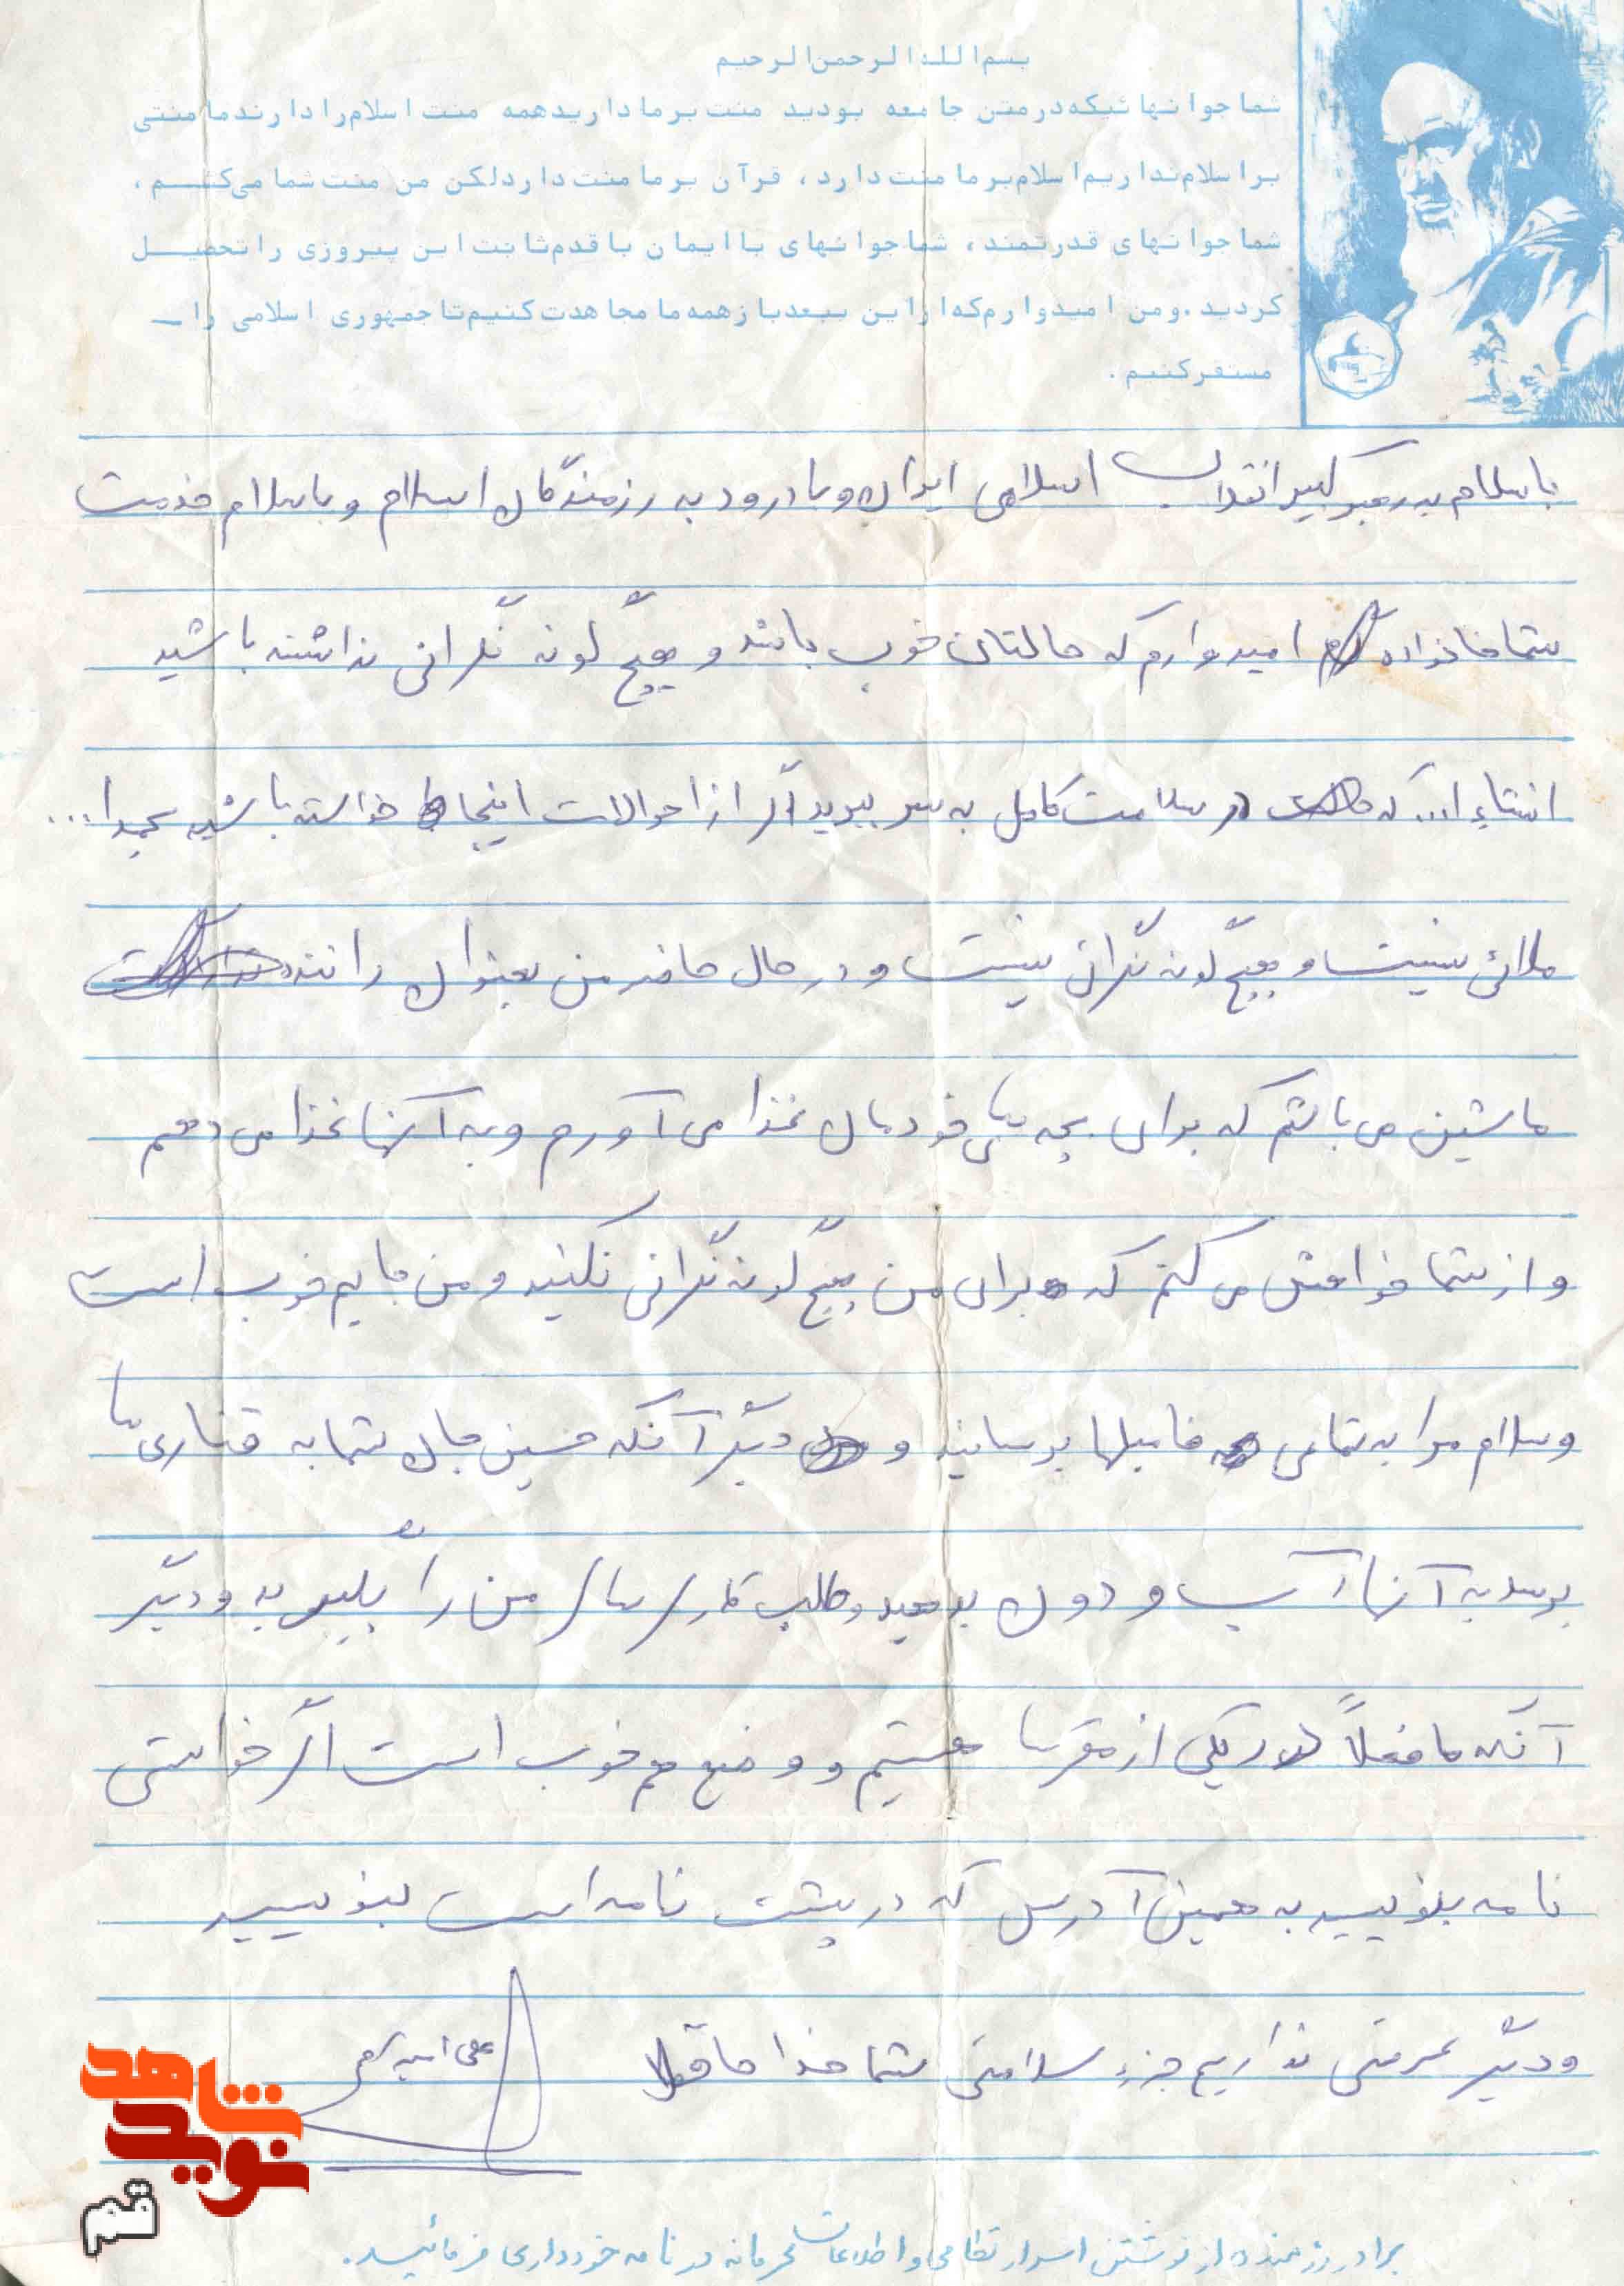 بسم الله الرحمن الرحیم
شما جوانهائیکه در متن جامعه بودید منت بر ما دارید همه منت اسلام را دارند ما منتی
بر اسلام نداریم اسلام بر ما منت دارد، قرآن بر ما منت دارد لکن من منت شما می‌کشم،
شما جوانهای قدرتمند، شما جوانهای با ایمان با قدم ثابت این پیروزی را تحصیل
کردید. و من امیدوارم که از این ببعد باز همه ما مجاهدت کنیم تا جمهوری اسلامی را
مستقر کنیم.
با سلام به رهبر کبیر انقلاب اسلامی ایران و با درود به رزمندگان اسلام و با سلام خدمت
شما خانواده امیدوارم که حالتان خوب باشد و هیچ گونه نگرانی نداشته باشید
انشاء ا... که در سلامت کامل به سر ببرید اگر از احوالات اینجا خواسته باشید بحمدا...
ملالی نیست و هیچ گونه نگرانی نیست و در حال حاضر من بعنوان راننده
ماشین می باشم که برای بچه های خودمان غذا می آورم و به آنها غذا می دهم
و از شما خواهش می کنم که برای من هیچ گونه نگرانی نکنید و من جایم خوب است
و سلام مرا به تمامی فامیلها برسانید و دیگر آنکه حسین جان شما به قناری ها
برسد به آنها آب و دون بدهید و طلب من را بگیرید و دیگر
آنکه ما فعلاً در یکی از مقرها هستیم و وضع هم خوب است اگر خواستی
نامه بنویسید به همین آدرس که در پشت نامه است بنویسید
و دیگر عرضی نداریم جزء سلامتی شما خدا حافظ
برادر رزمنده از نوشتن اسرار نظامی و اطلاعات محرمانه در نامه خودداری فرمائید.
نوید شاهد
قم